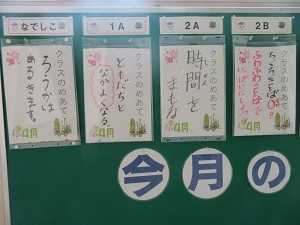 なでしこ
クラスのめあて
ろうかは
あるきます。
4月
1A
クラスのめあて
ともだちと
なかよくなる
4月
2A
クラスのめあて
時間を
まもる
4月
2B
クラスのめあて
ちくちくことば0
ふわふわことばで
いっぱいにしよう
4月
今月の